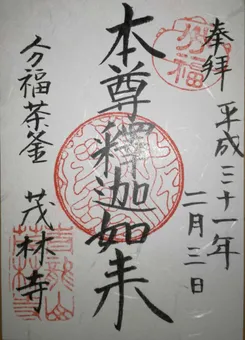 奉拝 平成三十一年
二月三日
本尊釋迦如来
分福茶釜 茂林寺
分福
青龍山
茂林寺